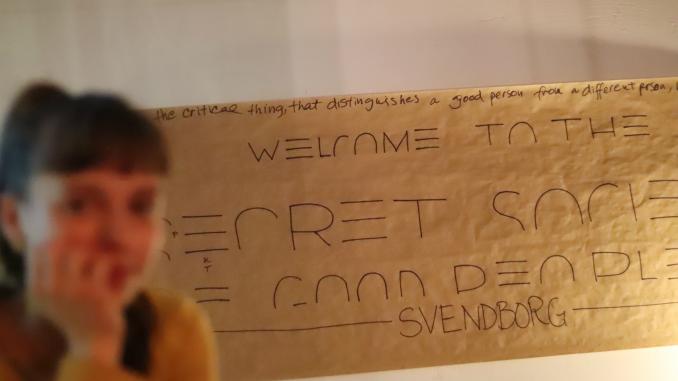 the critical thing, that distinguishes a good person from a different prson,
WELCOME TO THE
SECRET SOCIE
GOOD PEOPLE
SVENDBORG